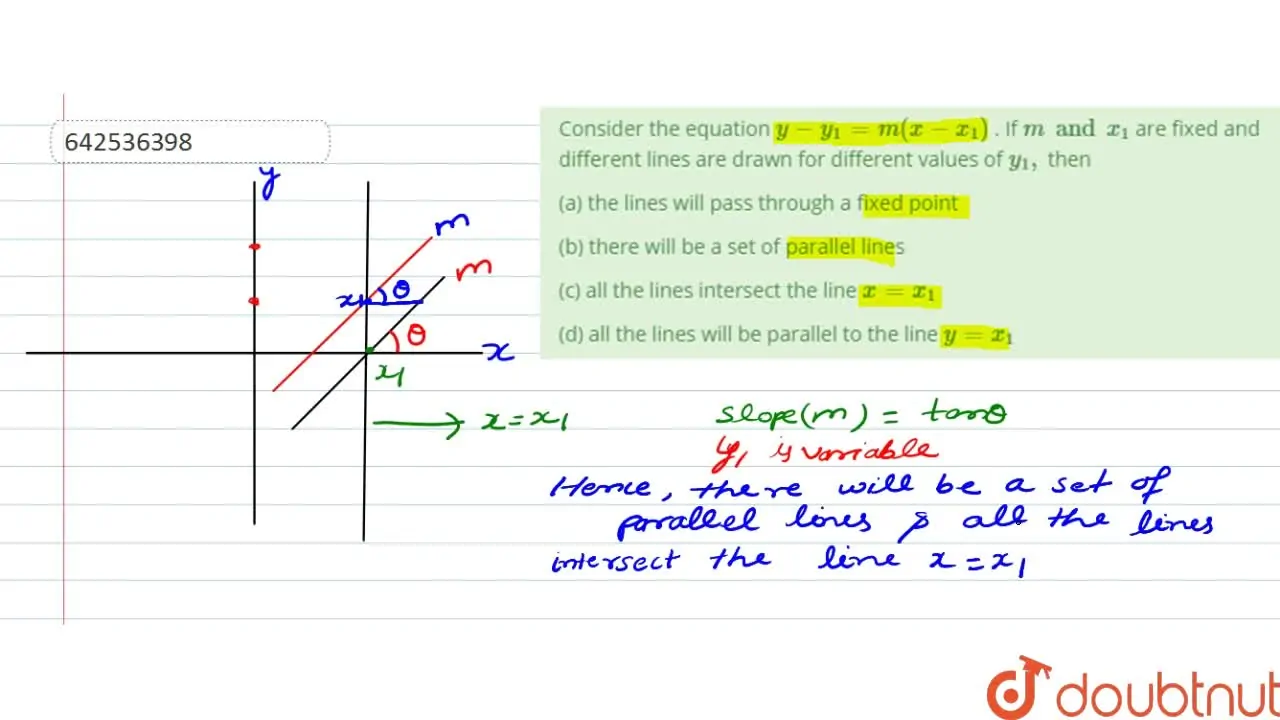 642536398
Consider the equation y − y₁ = m(x − x₁) . If m and x₁ are fixed and
different lines are drawn for different values of y₁, then
(a) the lines will pass through a fixed point
(b) there will be a set of parallel lines
(c) all the lines intersect the line x = x₁
(d) all the lines will be parallel to the line y = x₁
y
m
m
x₁ θ
θ
x
x₁
x = x₁
slope(m) = tanθ
y₁ is variable
Hence, there will be a set of
parallel lines & all the lines
intersect the line x = x₁
doubtnut